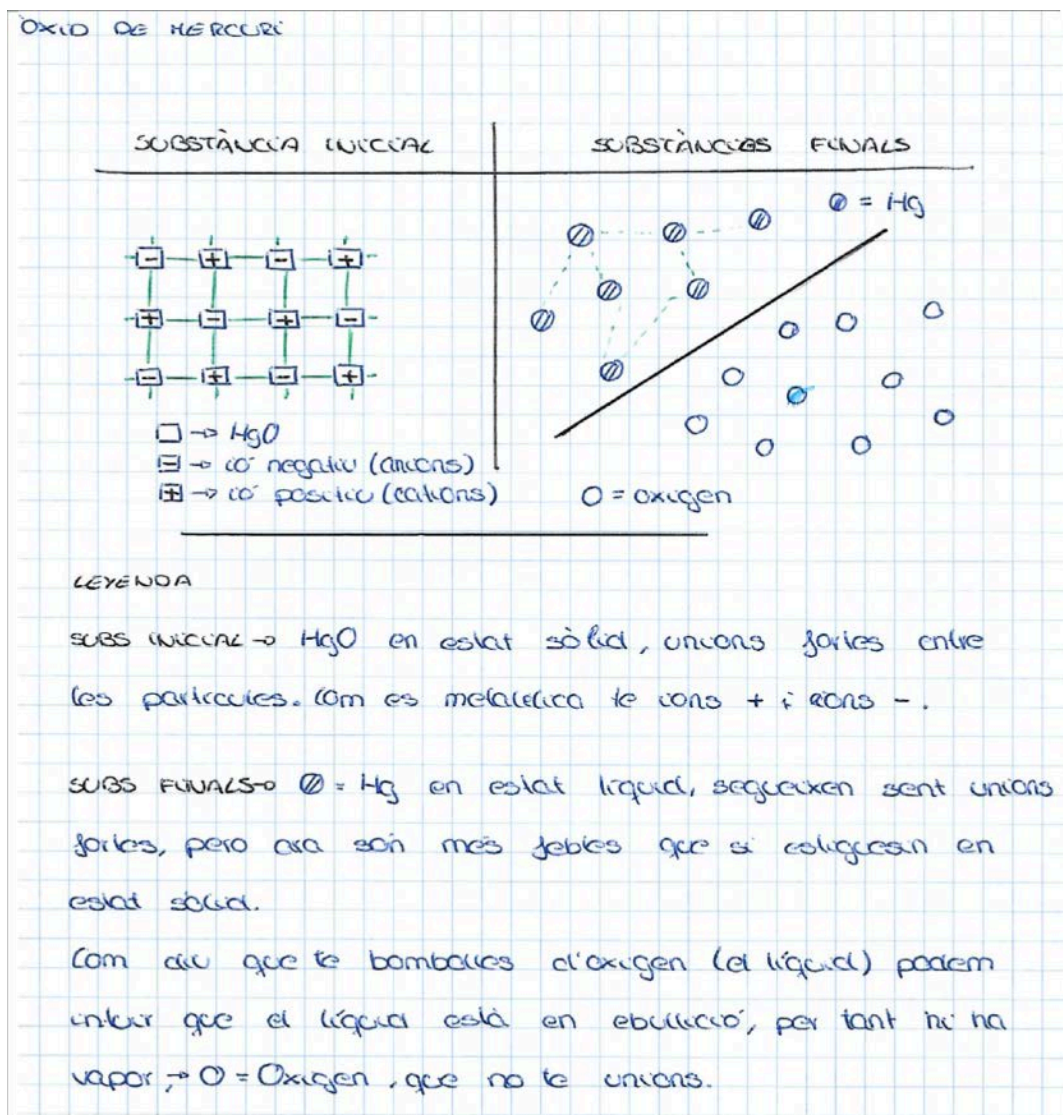 ÒXID DE MERCURI
SUBSTÀNCIA INICIAL
SUBSTÀNCIES FINALS
= Hg
- + - +
+ - + -
- + - +
□ → HgO
⊟ → ió negatiu (anions)
⊞ → ió positiu (cations)
O = oxigen
LEYENDA
SUBS INICIAL → HgO en estat sòlid, unions fortes entre
les particules. Com es metalelica te ions + i ions -.
SUBS FINALS → = Hg en estat líquid, segueixen sent unions
fortes, pero ara són més febles que si estiguesin en
estat sòlid.
Com diu que te bombolles d'oxigen (el líquid) podem
intuir que el líquid està en ebullició, per tant hi ha
vapor, → O = Oxigen, que no te unions.